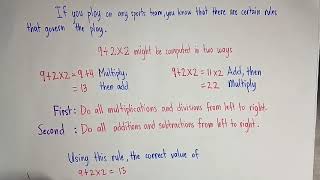 If you play on any sports team, you know that there are certain rules
that govern the play.
9+2×2 might be computed in two ways
9+2×2 = 9+4 Multiply,
= 13 then add
9+2×2 = 11×2 Add, then
= 22 Multiply
First: Do all multiplications and divisions from left to right.
Second: Do all additions and subtractions from left to right.
Using this rule, the correct value of
9+2×2 = 13